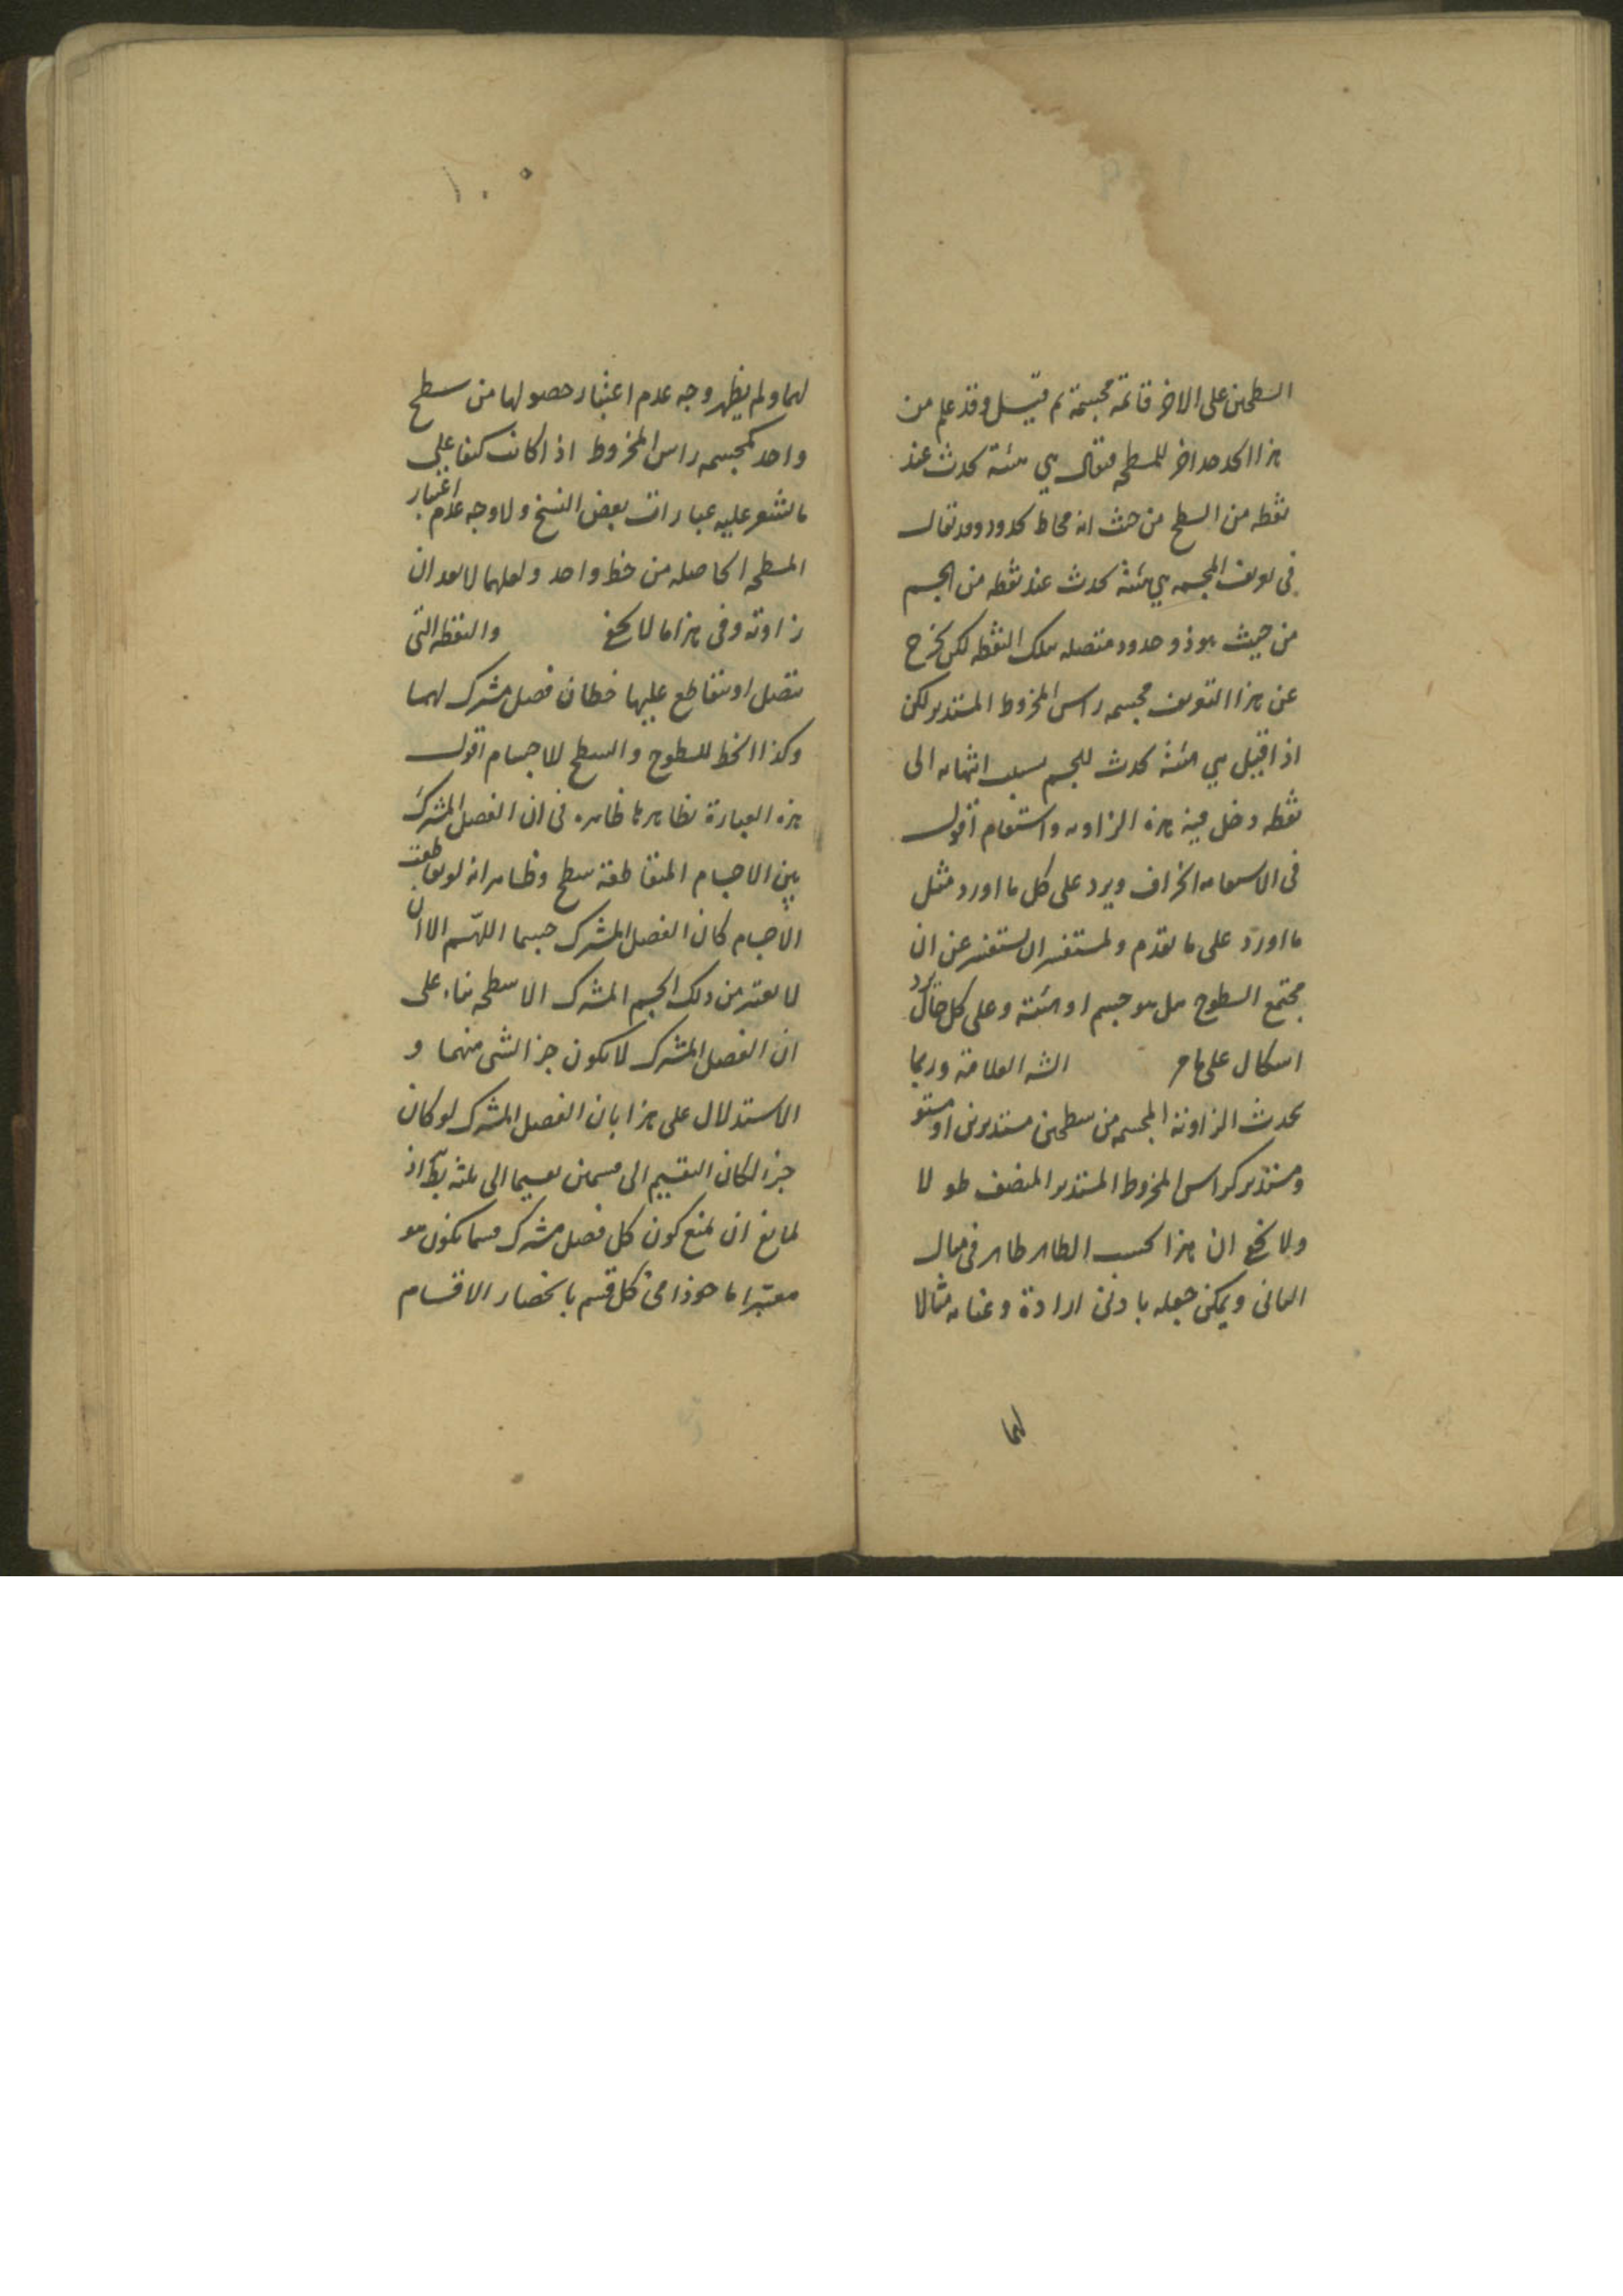 السطحين على الاخر قائمة مجسمة ثم قيل وقد علم من
هذا الحد حد اخر للمسطحه فيقال هي هيئة تحدث عند
نقطه من السطح من حيث انه محاط بحدود وقد يقال
فى تعريف المجسمه هي هيئة تحدث عند نقطه من الجسم
من حيث هو ذو حدود متصله بتلك النقطه لكن يخرج
عن هذا التعريف مجسمه راس المخروط المستدير لكن
اذا قيل هي هيئة تحدث للجسم بسبب انتهائه الى
نقطه دخل فيه هذه الزاويه واستقام اقول
فى الاستقامه انحراف ويرد على كل ما اورد مثل
ما اورد على ما تقدم ولمستفسر ان يستفسر عن ان
مجتمع السطوح هل هو جسم او هيئة وعلى كل حال يرد
اشكال على ما مر العلامة وربما
يحدث الزاوية المجسمه من سطحين مستديرين او مستو
ومستدير كراس المخروط المستدير المنصف طولا
ولا يخفى ان هذا بحسب الظاهر ظاهر فى مثال
الثانى ويمكن جعله بادنى ارادة وعنايه مثالا
لهما
١٠٠
لهما ولم يظهر وجه عدم اعتبار حصولها من سطح
واحد كمجسمه راس المخروط اذا كانت كنفا على
ما يشعر عليه عبارات بعض النسخ ولا وجه عدم اعتبار
المسطحه الحاصله من خط واحد ولعلهما لا يعدان
زاوية وفى هذا ما لا يخفى والنقطه التى
يتصل او يتقاطع عليها خطان فصل مشترك لهما
وكذا الخط للسطوح والسطح للاجسام اقول
هذه العبارة بظاهرها ظاهره فى ان الفصل المشترك
بين الاجسام المتقاطعة سطح وظاهر انه لو تقاطعت
الاجسام كان الفصل المشترك جسما اللهم الا ان
لا يعتبر من ذلك الجسم المشترك الا سطحه بناء على
ان الفصل المشترك لا يكون جزا لشى منهما و
الاستدلال على هذا بان الفصل المشترك لو كان
جزا لكان التقسيم الى قسمين تقسيما الى ثلثه اذ
لمانع ان يمنع كون كل فصل مشترك قسما بكون هو
معتبرا ماخوذا فى كل قسم بانحصار الاقسام